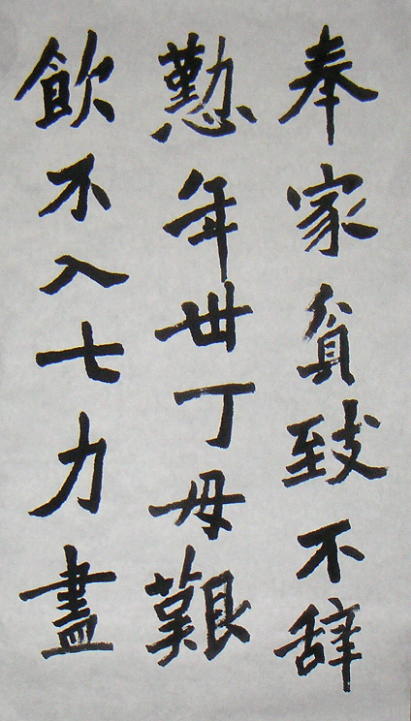 奉家貧致不辞
懃年丗丁母艱
飲不入七力盡